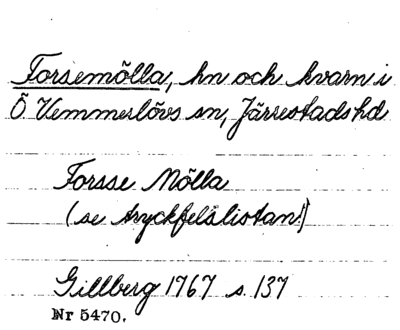 Forsemölla, hn och kvarn i
Ö Vemmerlövs sn, Järrestads hd
Forsse Mölla
(se tryckfelslistan!)
Gillberg 1767 s. 137
Nr 5470.